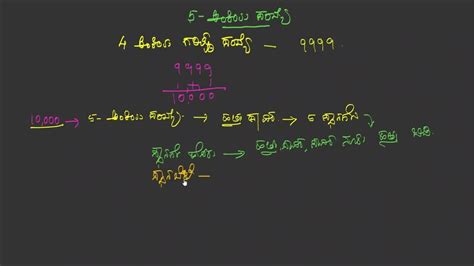 5- ಅಂಕಿಯ ಸಂಖ್ಯೆ
4 ಅಂಕಿಯ ಗರಿಷ್ಠ ಸಂಖ್ಯೆ — 9999
9999
+ 1
10000
10,000 → 5- ಅಂಕಿಯ ಸಂಖ್ಯೆ → ಹತ್ತು ಸಾವಿರ → 5 ಸ್ಥಾನಗಳು
ಸ್ಥಾನಗಳ ಹೆಸರು → ಹತ್ತು ಸಾವಿರ, ಸಾವಿರ, ನೂರು, ಹತ್ತು, ಬಿಡಿ
ಸ್ಥಾನಬೆಲೆ —